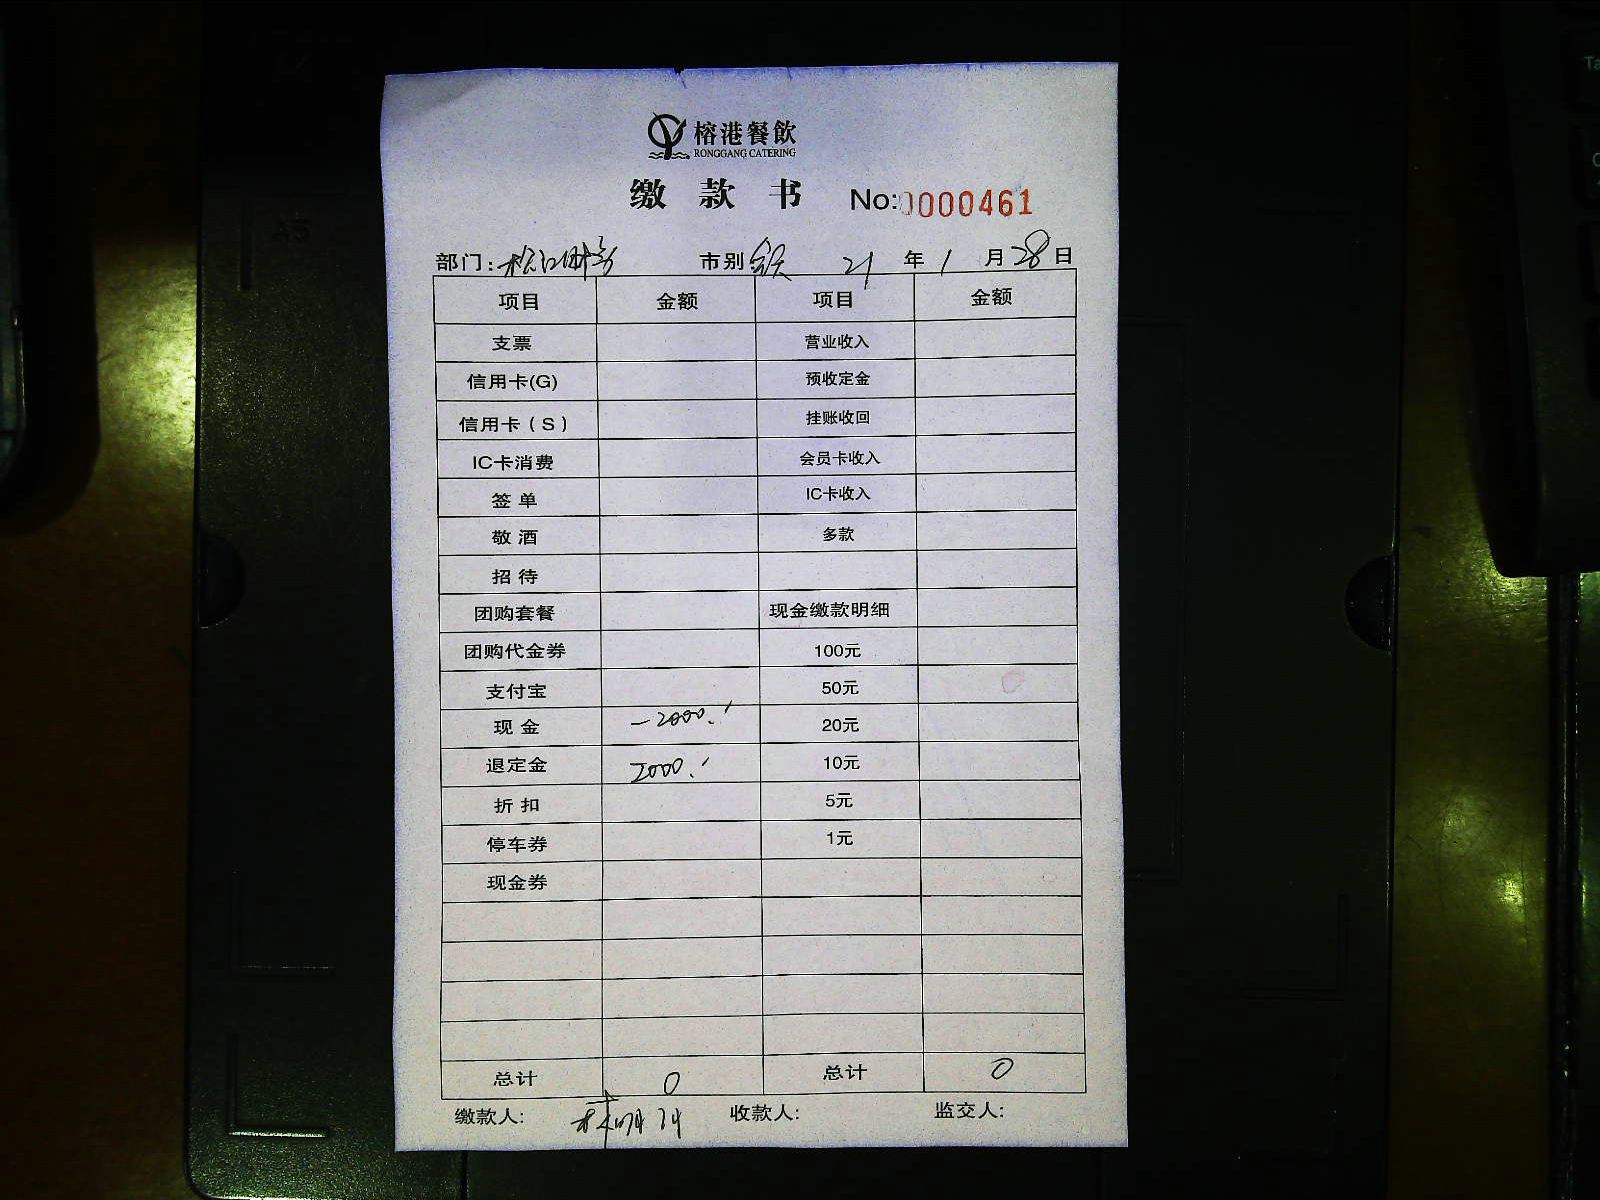 榕港餐飲
RONGGANG CATERING
缴款书 No:0000461
部门: 市别 21 年 1 月 28 日
项目 金额 项目 金额
支票 营业收入
信用卡(G) 预收定金
信用卡(S) 挂账收回
IC卡消费 会员卡收入
签单 IC卡收入
敬酒 多款
招待
团购套餐 现金缴款明细
团购代金券 100元
支付宝 50元
现金 -2000. 20元
退定金 2000. 10元
折扣 5元
停车券 1元
现金券
总计 0 总计 0
缴款人: 收款人: 监交人: